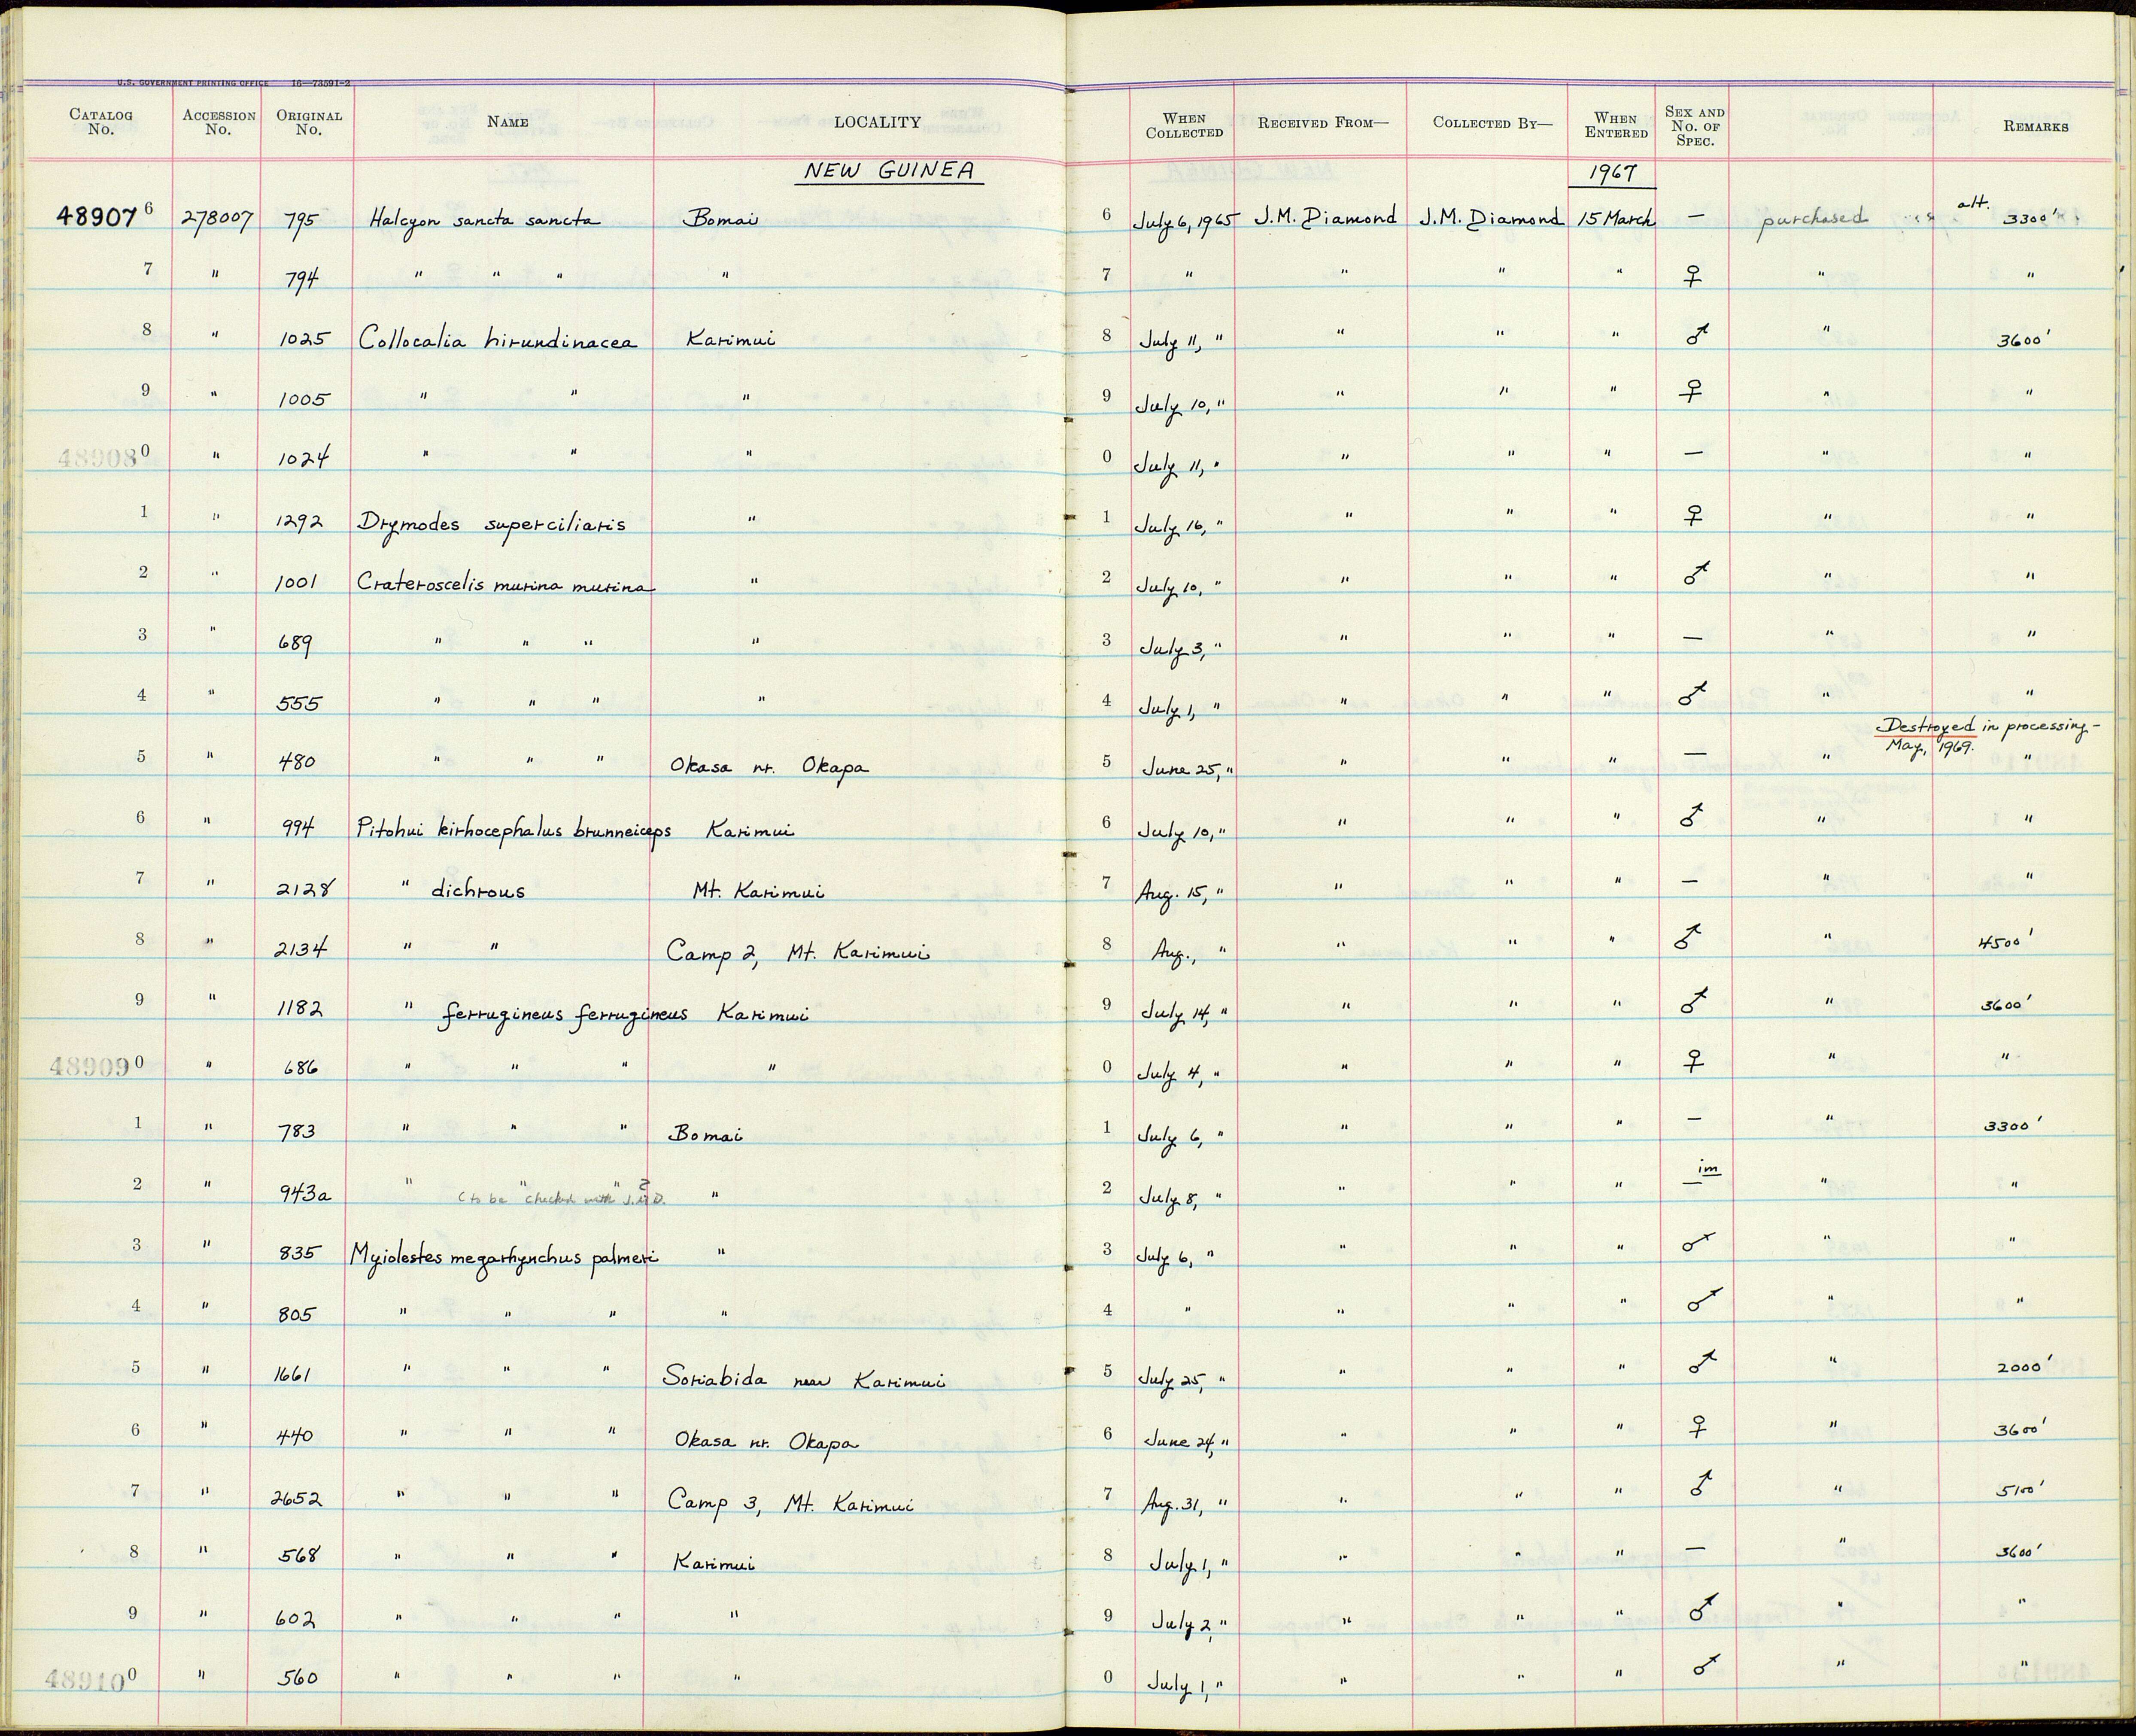 U.S. GOVERNMENT PRINTING OFFICE 16—73591-2
CATALOG No. ACCESSION No. ORIGINAL No. NAME LOCALITY WHEN COLLECTED RECEIVED FROM— COLLECTED BY— WHEN ENTERED SEX AND No. OF SPEC. REMARKS
NEW GUINEA 1967
48907 6 278007 795 Halcyon sancta sancta Bomai 6 July 6, 1965 J.M. Diamond J.M. Diamond 15 March — purchased alt. 3300'
7 " 794 " " " " 7 " " " " ♀ " "
8 " 1025 Collocalia hirundinacea Karimui 8 July 11, " " " " ♂ " 3600'
9 " 1005 " " " 9 July 10, " " " " ♀ " "
48908 0 " 1024 " " " 0 July 11, " " " " — " "
1 " 1292 Drymodes superciliaris " 1 July 16, " " " " ♀ " "
2 " 1001 Crateroscelis murina murina " 2 July 10, " " " " ♂ " "
3 " 689 " " " " 3 July 3, " " " " — " "
4 " 555 " " " " 4 July 1, " " " " ♂ " "
Destroyed in processing - May, 1969.
5 " 480 " " " Okasa nr. Okapa 5 June 25, " " " " — " "
6 " 994 Pitohui kirhocephalus brunneiceps Karimui 6 July 10, " " " " ♂ " "
7 " 2128 " dichrous Mt. Karimui 7 Aug. 15, " " " " — " "
8 " 2134 " " Camp 2, Mt. Karimui 8 Aug., " " " " ♂ " 4500'
9 " 1182 " ferrugineus ferrugineus Karimui 9 July 14, " " " " ♂ " 3600'
48909 0 " 686 " " " " 0 July 4, " " " " ♀ " "
1 " 783 " " " Bomai 1 July 6, " " " " — " 3300'
2 " 943a " " " ? " 2 July 8, " " " " — im " "
(to be checked with J.M.D.
3 " 835 Myiolestes megarhynchus palmeri " 3 July 6, " " " " ♂ " "
4 " 805 " " " " 4 " " " " ♂ " "
5 " 1661 " " " Soriabida near Karimui 5 July 25, " " " " ♂ " 2000'
6 " 440 " " " Okasa nr. Okapa 6 June 24, " " " " ♀ " 3600'
7 " 2652 " " " Camp 3, Mt. Karimui 7 Aug. 31, " " " " ♂ " 5100'
8 " 568 " " " Karimui 8 July 1, " " " " — " 3600'
9 " 602 " " " " 9 July 2, " " " " ♂ " "
48910 0 " 560 " " " " 0 July 1, " " " " ♂ " "